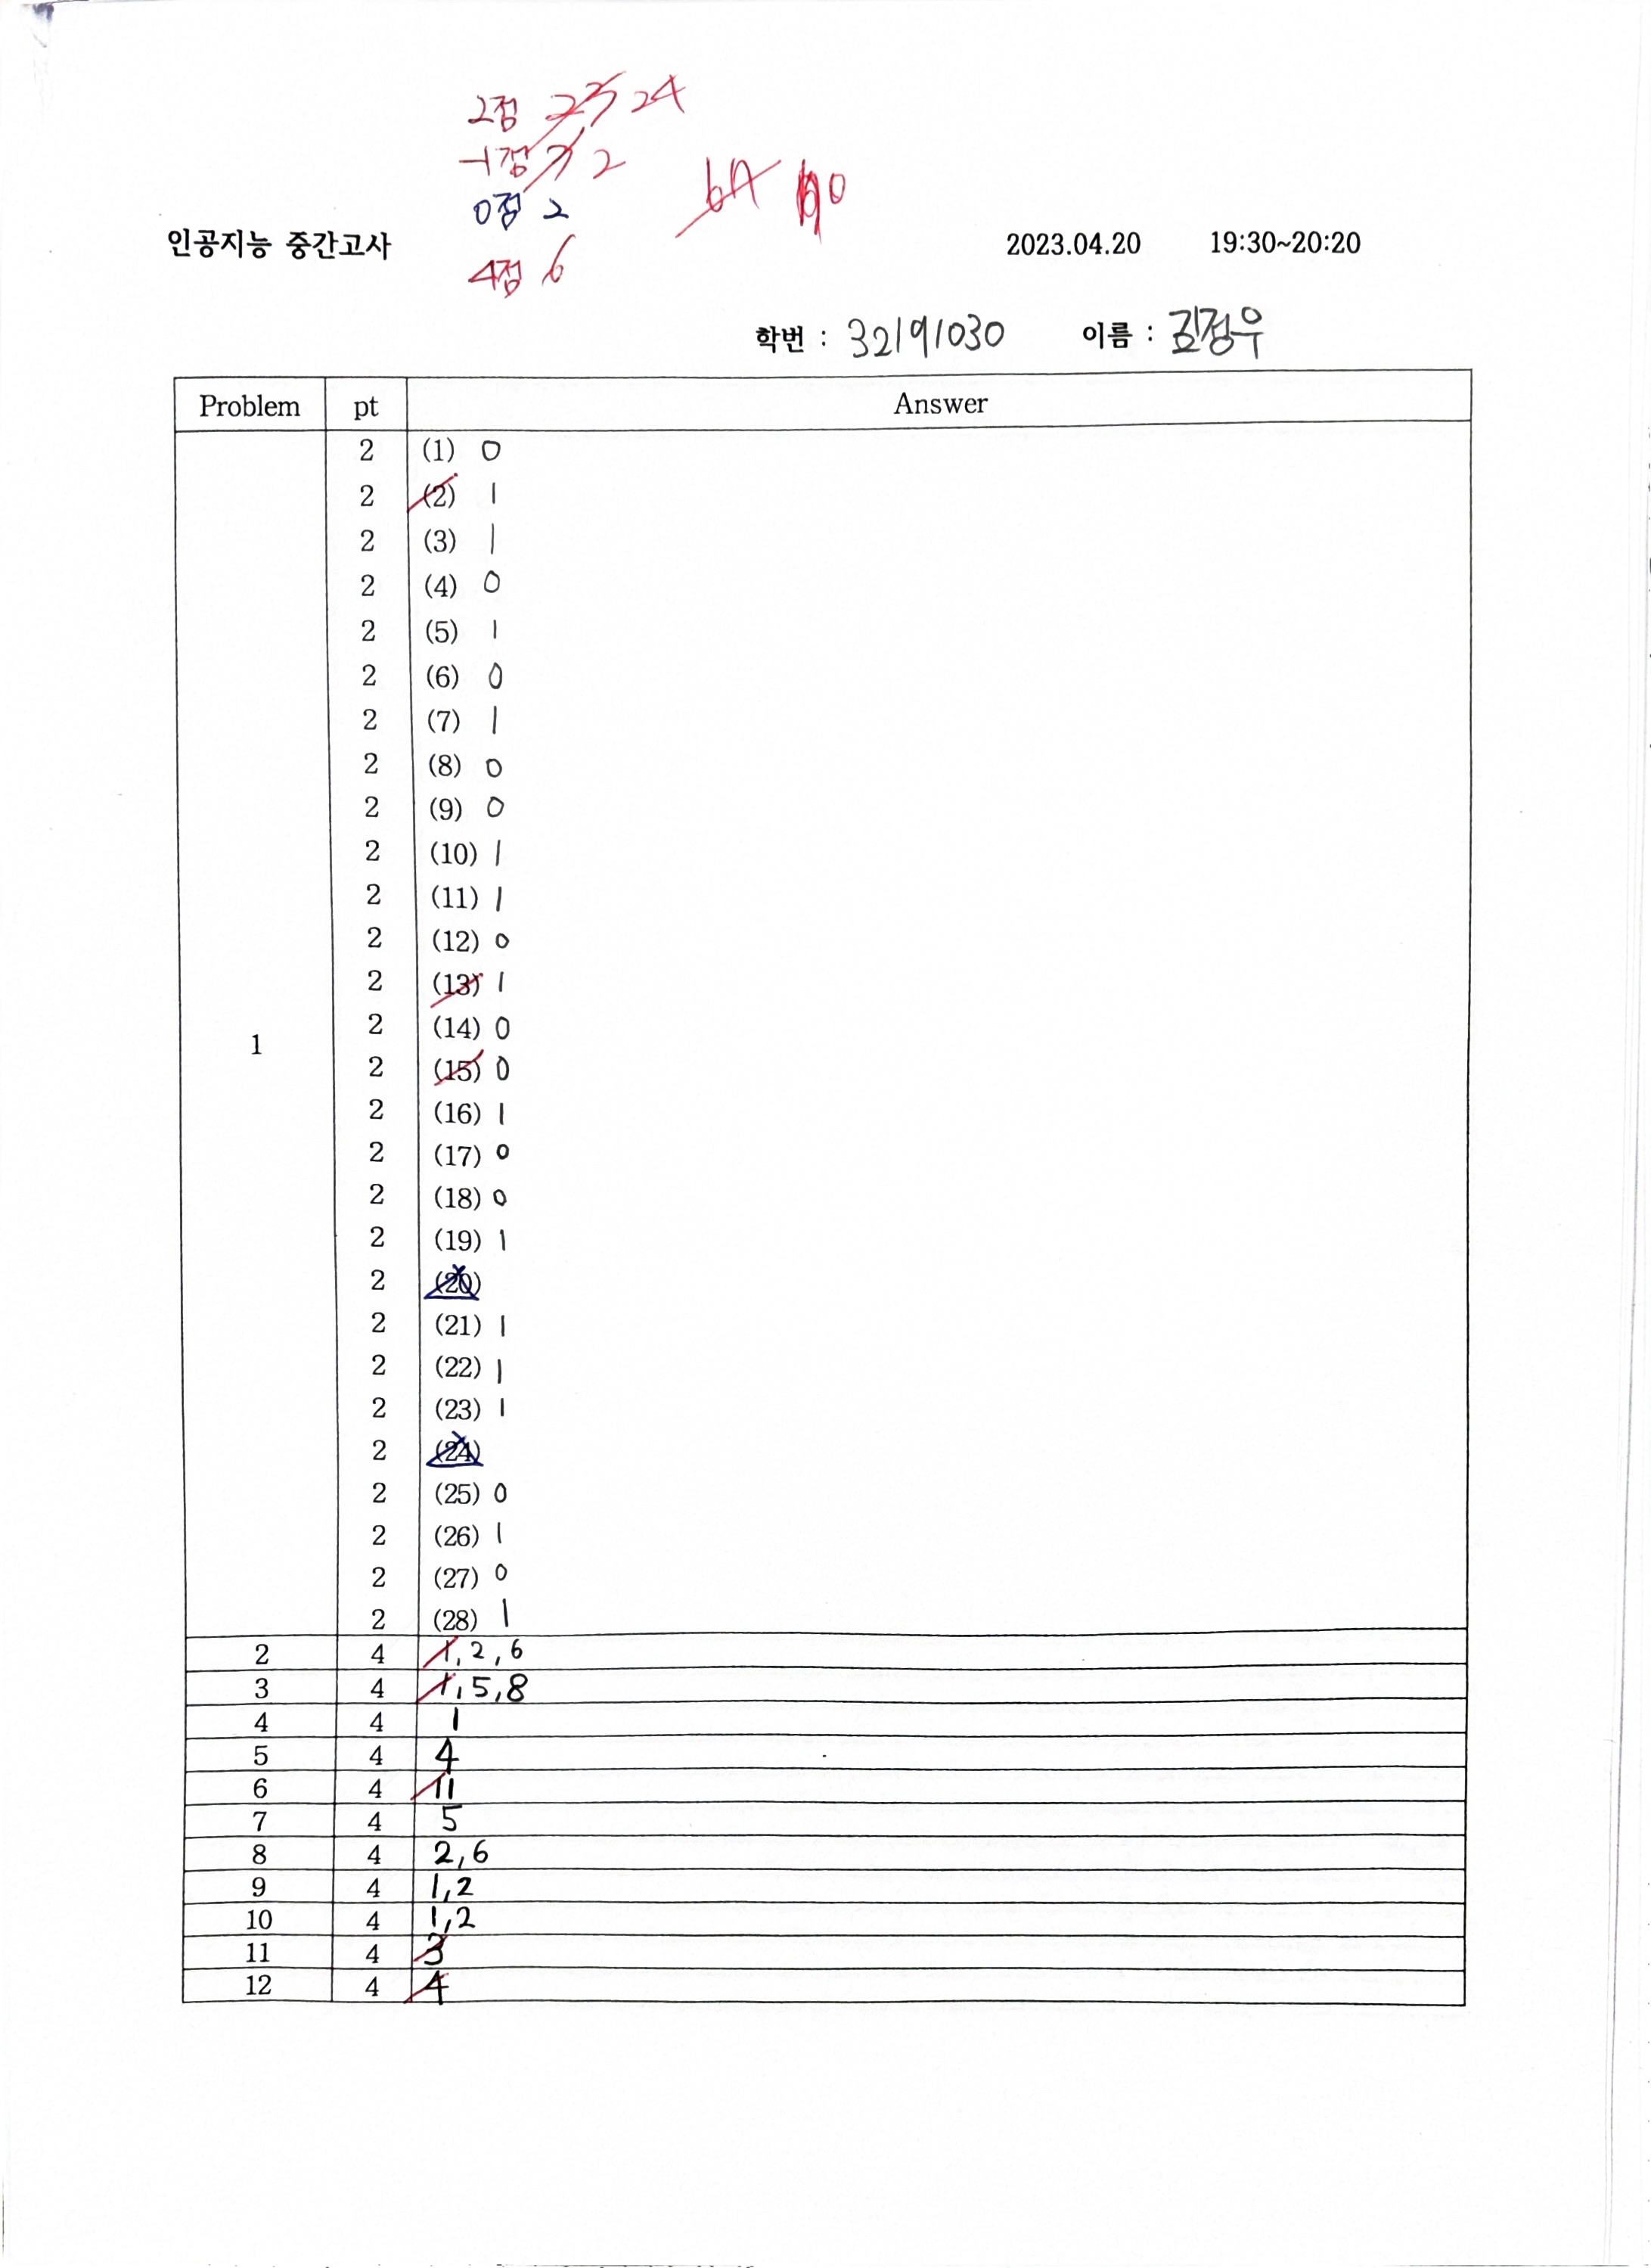 2점 23 24
-1점 3 2
0점 2
4점 6
인공지능 중간고사
2023.04.20 19:30~20:20
학번 : 32191030 이름 : 김정우
Problem pt Answer
2 (1) 0
2 (2) 1
2 (3) 1
2 (4) 0
2 (5) 1
2 (6) 0
2 (7) 1
2 (8) 0
2 (9) 0
2 (10) 1
2 (11) 1
2 (12) 0
2 (13) 1
2 (14) 0
1
2 (15) 0
2 (16) 1
2 (17) 0
2 (18) 0
2 (19) 1
2 (20)
2 (21) 1
2 (22) 1
2 (23) 1
2 (24)
2 (25) 0
2 (26) 1
2 (27) 0
2 (28) 1
2 4 1, 2, 6
3 4 1, 5, 8
4 4 1
5 4 4
6 4 11
7 4 5
8 4 2, 6
9 4 1, 2
10 4 1, 2
11 4 3
12 4 4